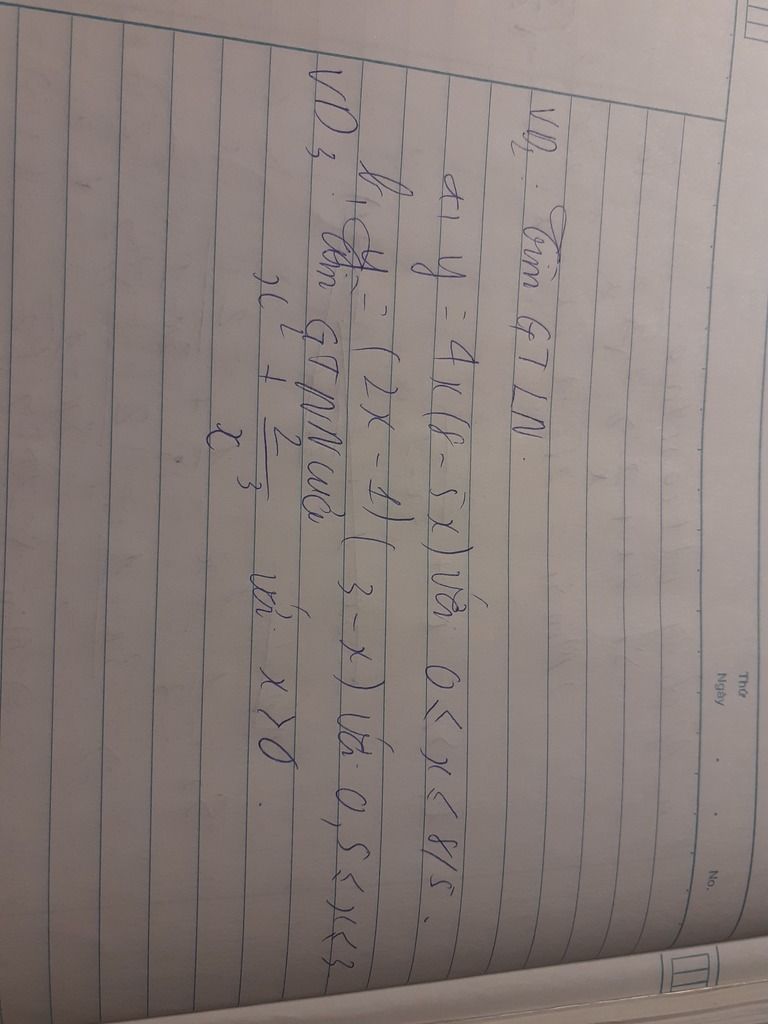 Thứ
Ngày . . No.
VD2. Tìm GTLN.
a, y = 4x(8-5x) với 0 ≤ x ≤ 8/5.
b, y = (2x-1)(3-x) với 0,5 ≤ x ≤ 3
VD3. Tìm GTNN của
x² + 2/x³ với x > 0.